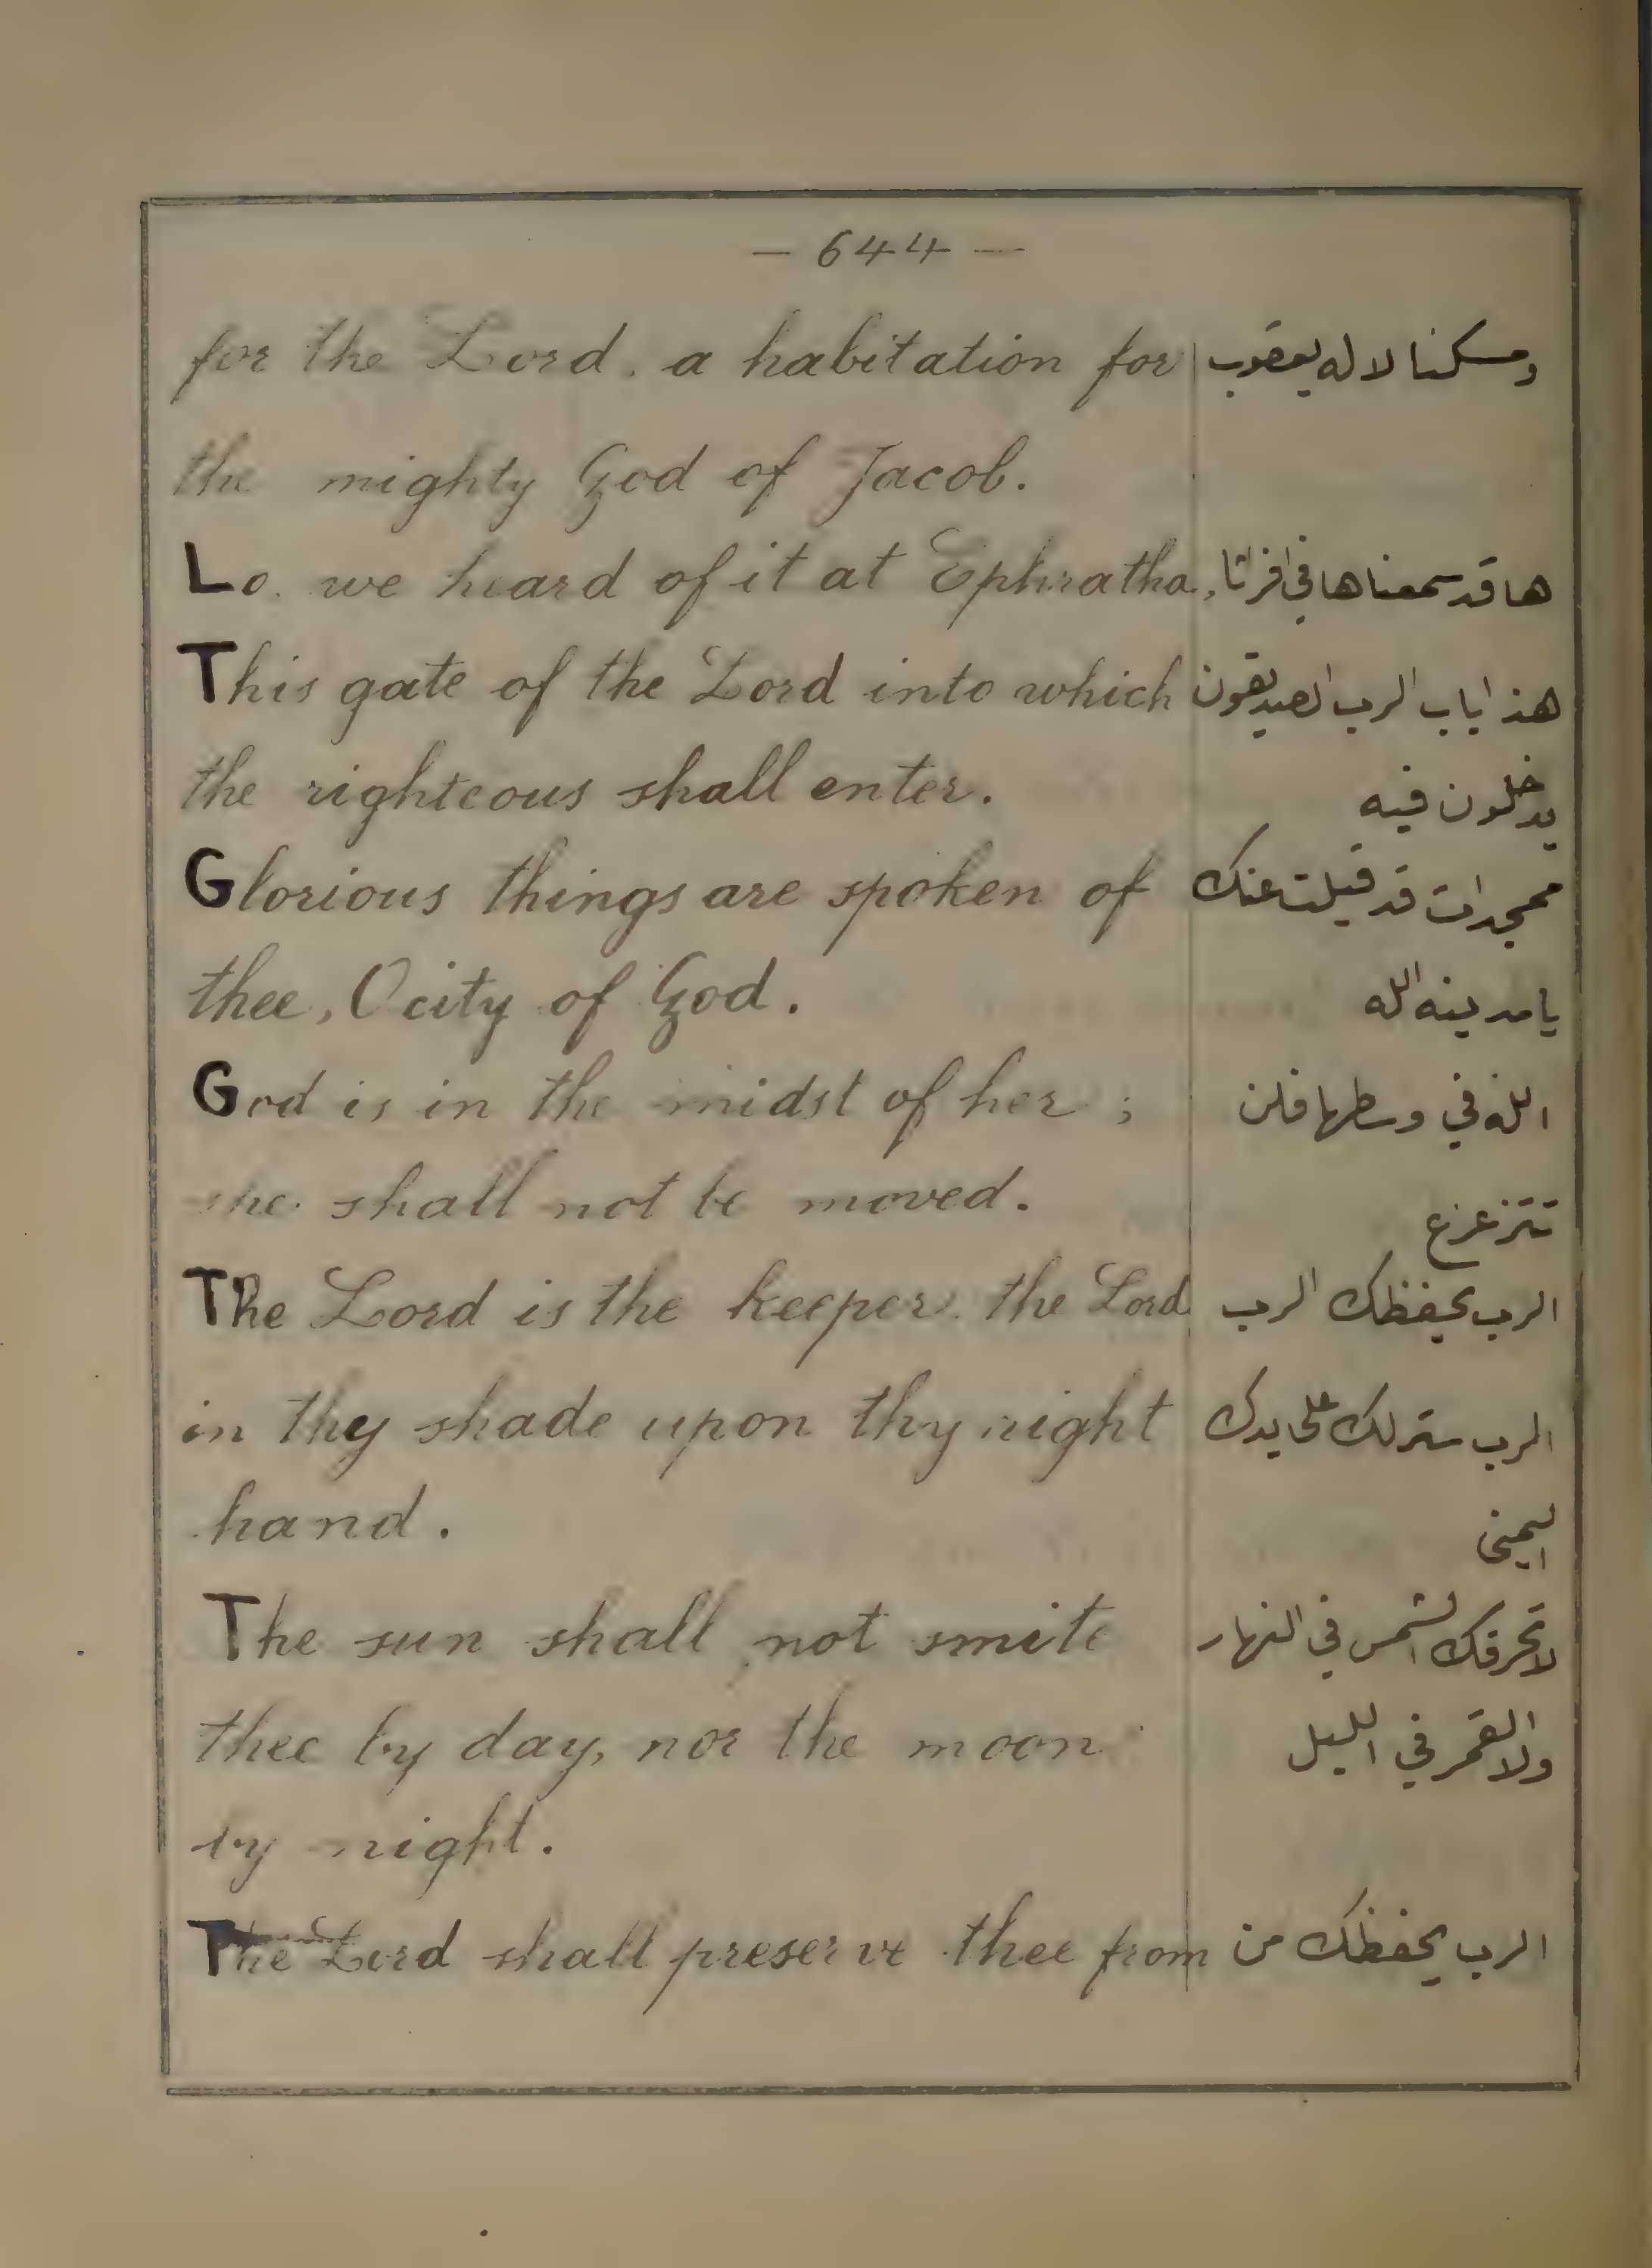 — 644 —
for the Lord. a habitation for ومسكنا لاله يعقوب
the mighty God of Jacob.
Lo. we heard of it at Ephratha, ها قد سمعناها في افراثا
This gate of the Lord into which هذا باب الرب الصديقون
the righteous shall enter. يدخلون فيه
Glorious things are spoken of ممجدات قد قيلت عنك
thee, O city of God. يا مدينه الله
God is in the midst of her ; الله في وسطها فلن
she shall not be moved. تتزعزع
The Lord is the keeper. the Lord الرب يحفظك الرب
in thy shade upon thy right الرب ستر لك على يدك
hand. اليمنى
The sun shall not smite لا تحرقك الشمس في النهار
thee by day, nor the moon ولا القمر في الليل
by night.
The Lord shall preserve thee from الرب يحفظك من